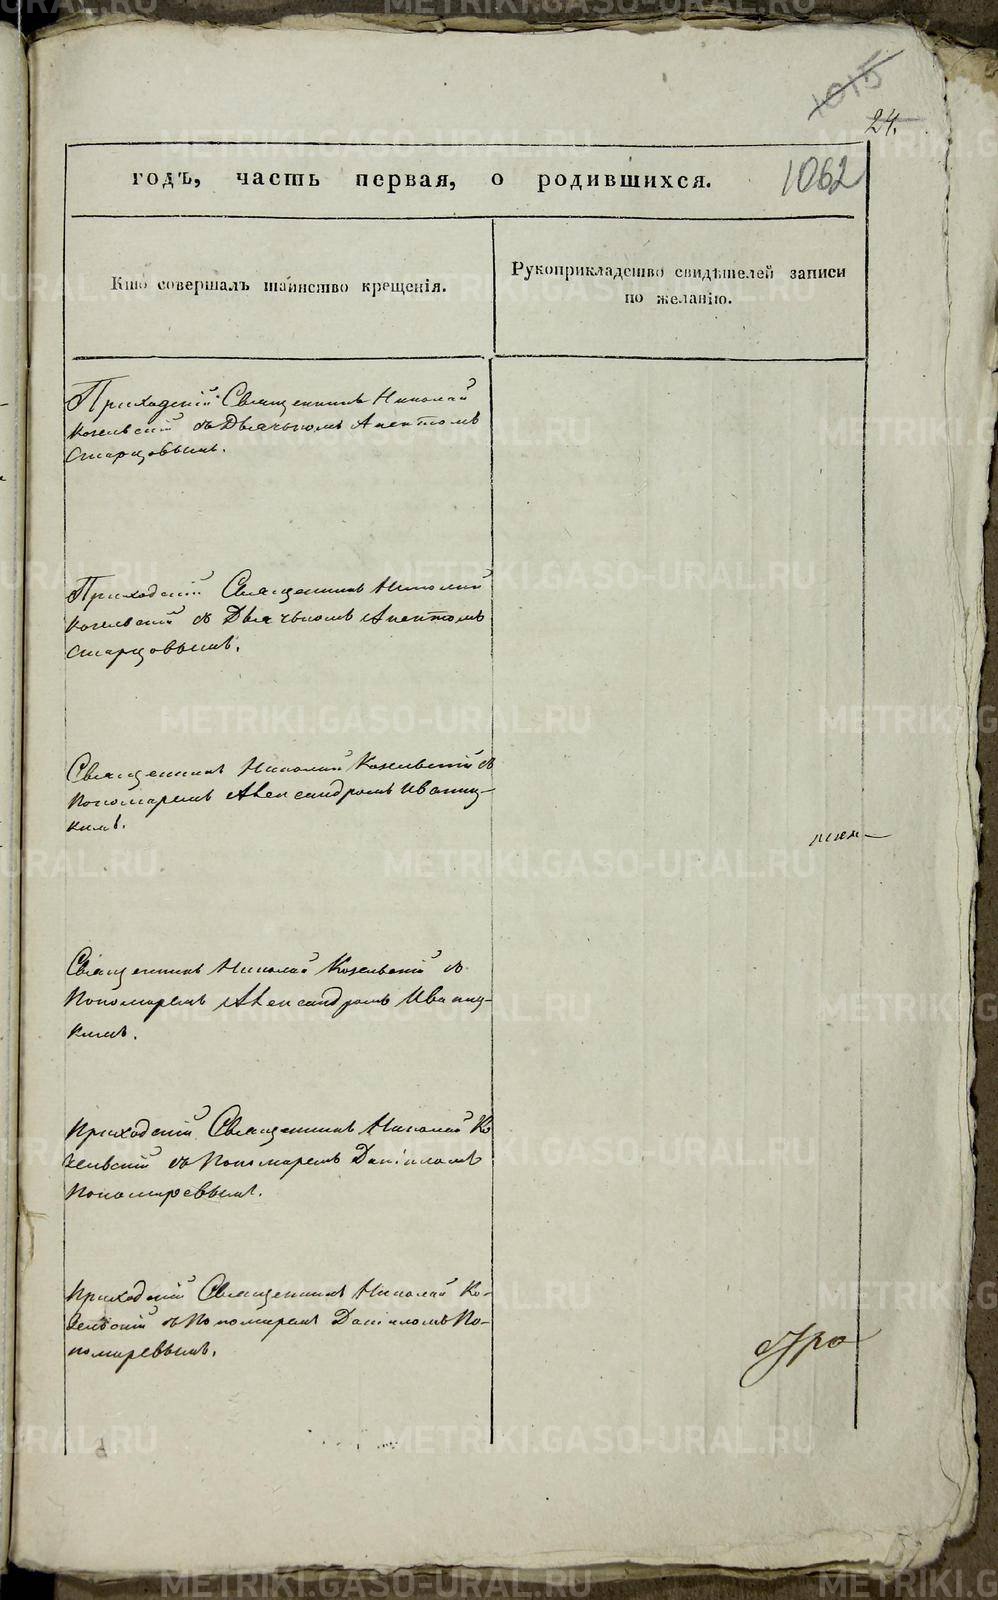 1015
24.
годъ, часть первая, о родившихся.
1062
Кто совершалъ таинство крещенія.
Рукоприкладство свидѣтелей записи
по желанію.
Приходскій Священникъ Николай
Козельскій съ Дьячькомъ Акентомъ
Старцовымъ.
Приходскій Священникъ Николай
Козельскій съ Дьячькомъ Акентомъ
Старцовымъ.
Священникъ Николай Козельскій съ
Пономаремъ Александромъ Иваниц-
кимъ.
Священникъ Николай Козельскій съ
Пономаремъ Александромъ Иваниц-
кимъ.
Приходскій Священникъ Николай Ко
зельскій съ Пономаремъ Даніиломъ
Пономаревымъ.
Приходскій Священникъ Николай Ко-
зельскій съ Пономаремъ Даніиломъ По-
номаревымъ.
METRIKI.GASO-URAL.RU